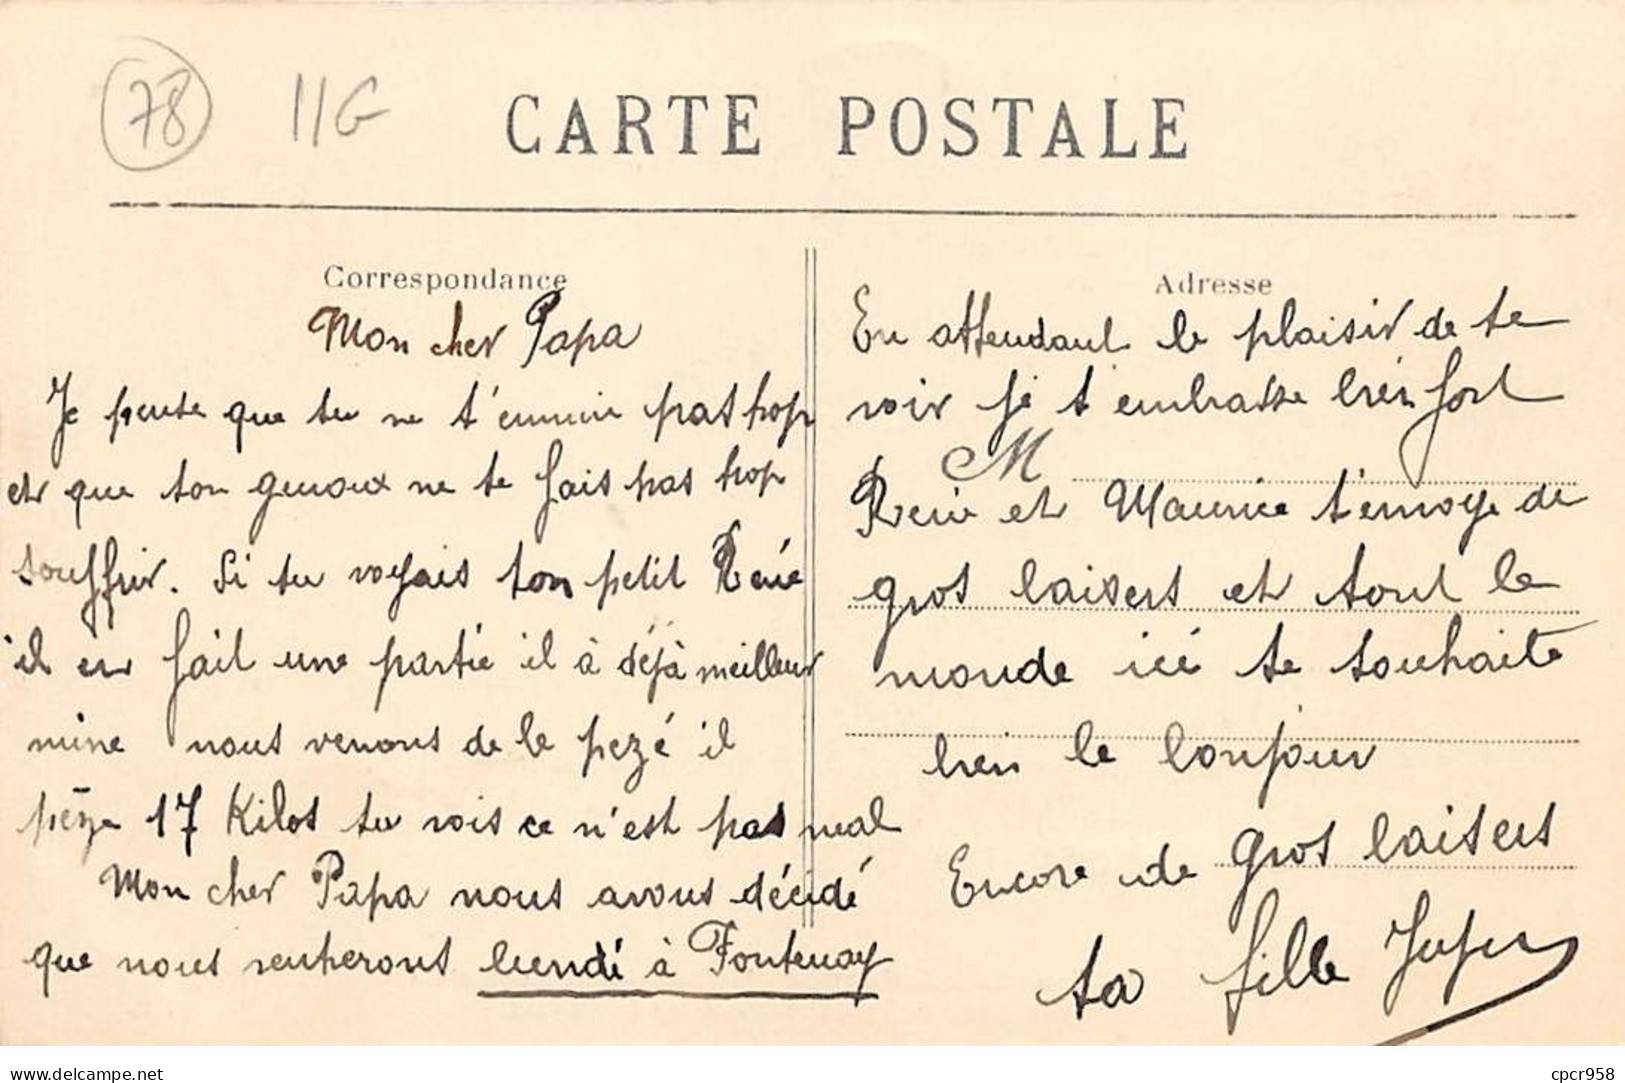 78 11G
CARTE POSTALE
Correspondance
Mon cher Papa
Je pense que tu ne t'ennuie pas trop
et que ton genoux ne te fais pas trop
souffrir. Si tu voyais ton petit Réné
il en fait une partie il à déjà meilleur
mine nous venons de le pezé il
pèze 17 Kilos tu vois ce n'est pas mal
Mon cher Papa nous avons décidé
que nous rentrerons lundi à Fontenay
Adresse
En attendant le plaisir de te
voir je t'embrasse bien fort
M
René et Maurice t'envoye de
gros baisers et tout le
monde ici te souhaite
bien le bonjour
Encore de gros baisers
ta fille
delcampe.net
cpcr958